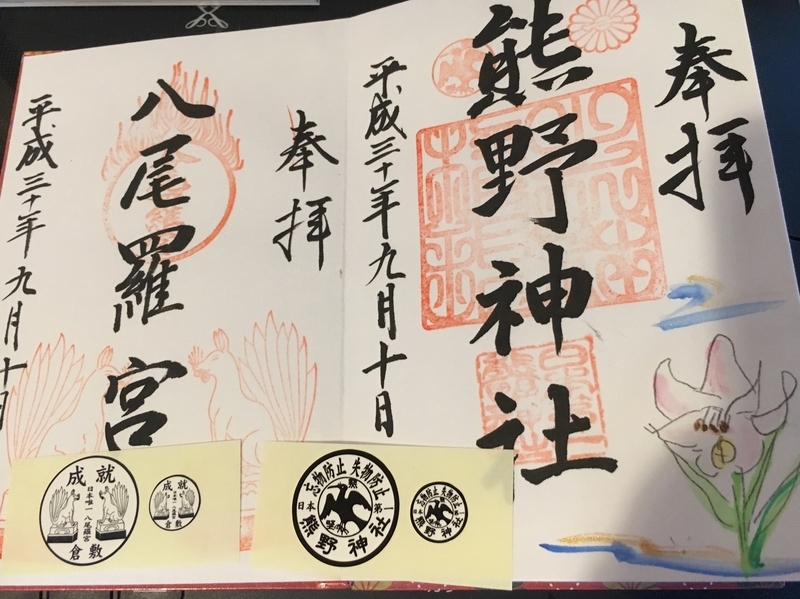 奉拝
熊野神社
平成三十年九月十日
奉拝
八尾羅宮
平成三十年九月十日
成就
日本唯一
八尾羅宮
倉敷
成就
倉敷
忘物防止 失物防止
日本 第一
熊野神社
忘物防止 失物防止
熊野神社